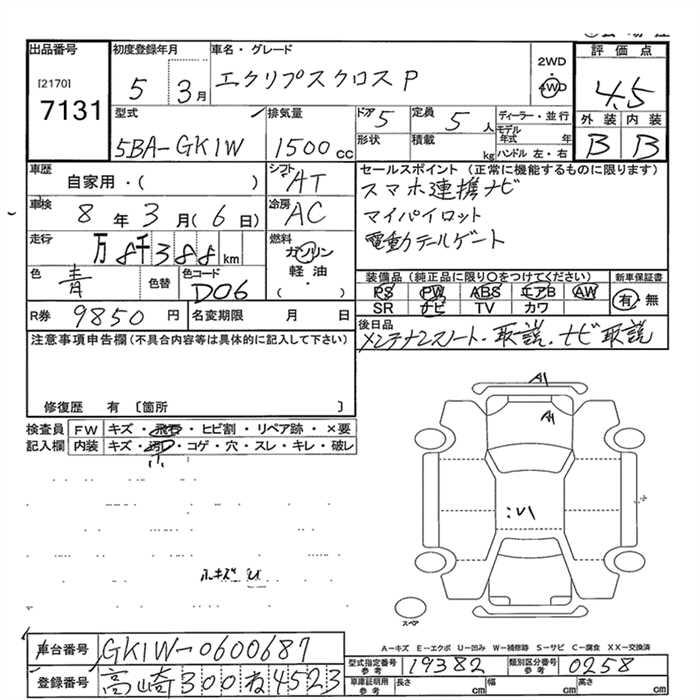 出品番号 初度登録年月 車名・グレード 評価点
[2170] 7131
5 3月 エクリプスクロス P 2WD ・ 4WD 4.5
型式 排気量 ドア 5 定員 5人 ディーラー・並行 外装 内装
5BA-GK1W 1500cc 形状 積載 kg モデル年式 年 ハンドル 左・右 B B
車歴 自家用・( ) シフト AT セールスポイント (正常に機能するものに限ります)
車検 8年3月(6日) 冷房 AC スマホ連携ナビ
マイパイロット
走行 万8千388km 燃料 ガソリン 軽油・( ) 電動テールゲート
色 青 色替 色コード D06 装備品 (純正品に限り○をつけてください) 新車保証書
PS PW ABS エアB AW 有・無
SR ナビ TV カワ
R券 9850円 名変期限 月 日 後日品
メンテナンスノート・取説・ナビ取説
注意事項申告欄(不具合内容等は具体的に記入して下さい)
修復歴 有 〔箇所 〕
検査員 FW キズ・飛石・ヒビ割・リペア跡・×要
記入欄 内装 キズ・汚・コゲ・穴・スレ・キレ・破レ
A1
A1
小キズ U
スペア
A-キズ E-エクボ U-凹み W-補修跡 S-サビ C-腐食 XX-交換済
車台番号 GK1W-0600687
型式指定番号 参考 19382 類別区分番号 参考 0258
登録番号 高崎300ね4523
車庫証明用 参考 長さ cm 幅 cm 高さ cm